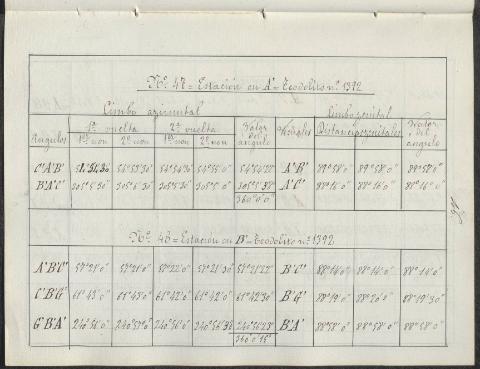 Nº 47 = Estación en A' = Teodolito nº 1392
Limbo azimutal Limbo zenital
Angulos 1ª vuelta 2ª vuelta Valor del ángulo Visuales Distancias zenitales Valor del ángulo
1er non 2º non 1er non 2º non
C'A'B' 54°54'30 54°53'30" 54°54'30" 54°55'0" 54°54'22" A'B' 89°58'0 89°58'0" 89°58'0"
B'A'C' 305°5'30" 305°6'30" 305°5'30" 305°5'0" 305°5'38" A'C' 88°15'0" 88°16'0" 88°16'0"
360°0'0"
Nº 48 = Estación en B' = Teodolito nº 1392
A'B'C' 57°21'0" 57°21'0" 57°22'0" 57°21'30" 57°21'22" B'C' 88°14'0" 88°14'0" 88°14'0
C'B'G' 61°43'0" 61°43'0" 61°42'0" 61°42'0" 61°42'30" B'G' 88°19'0" 88°20'0" 88°19'30
G'B'A' 240°56'0" 240°57'0" 240°56'0" 240°56'30 240°56'23" B'A' 88°58'0" 88°58'0" 88°58'0
360°0'15"